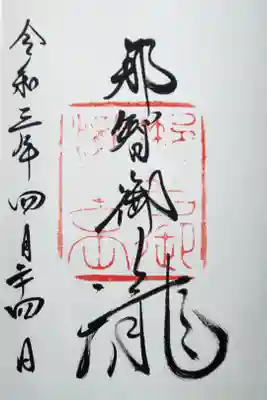 那智御瀧
令和三年四月二十四日